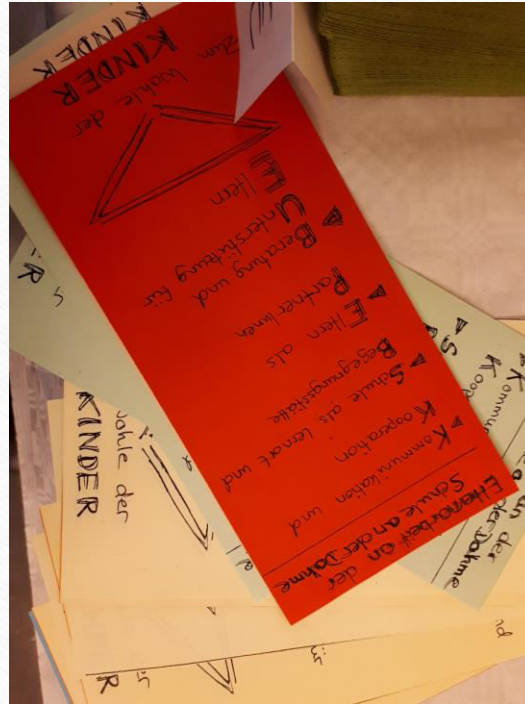 Elternarbeit an der
Schule an der Dahme
▸ Kommunikation und
Kooperation
▸ Schule als Lernort und
Begegnungsstätte
▸ Eltern als
PartnerInnen
▸ Beratung und
Unterstützung für
Eltern
Zum
Wohle der
KINDER
KINDER
KINDER
an der
der Dahme
▸ Kommu
Koop
▸ S
Wohle der
KINDER
nd
R
R